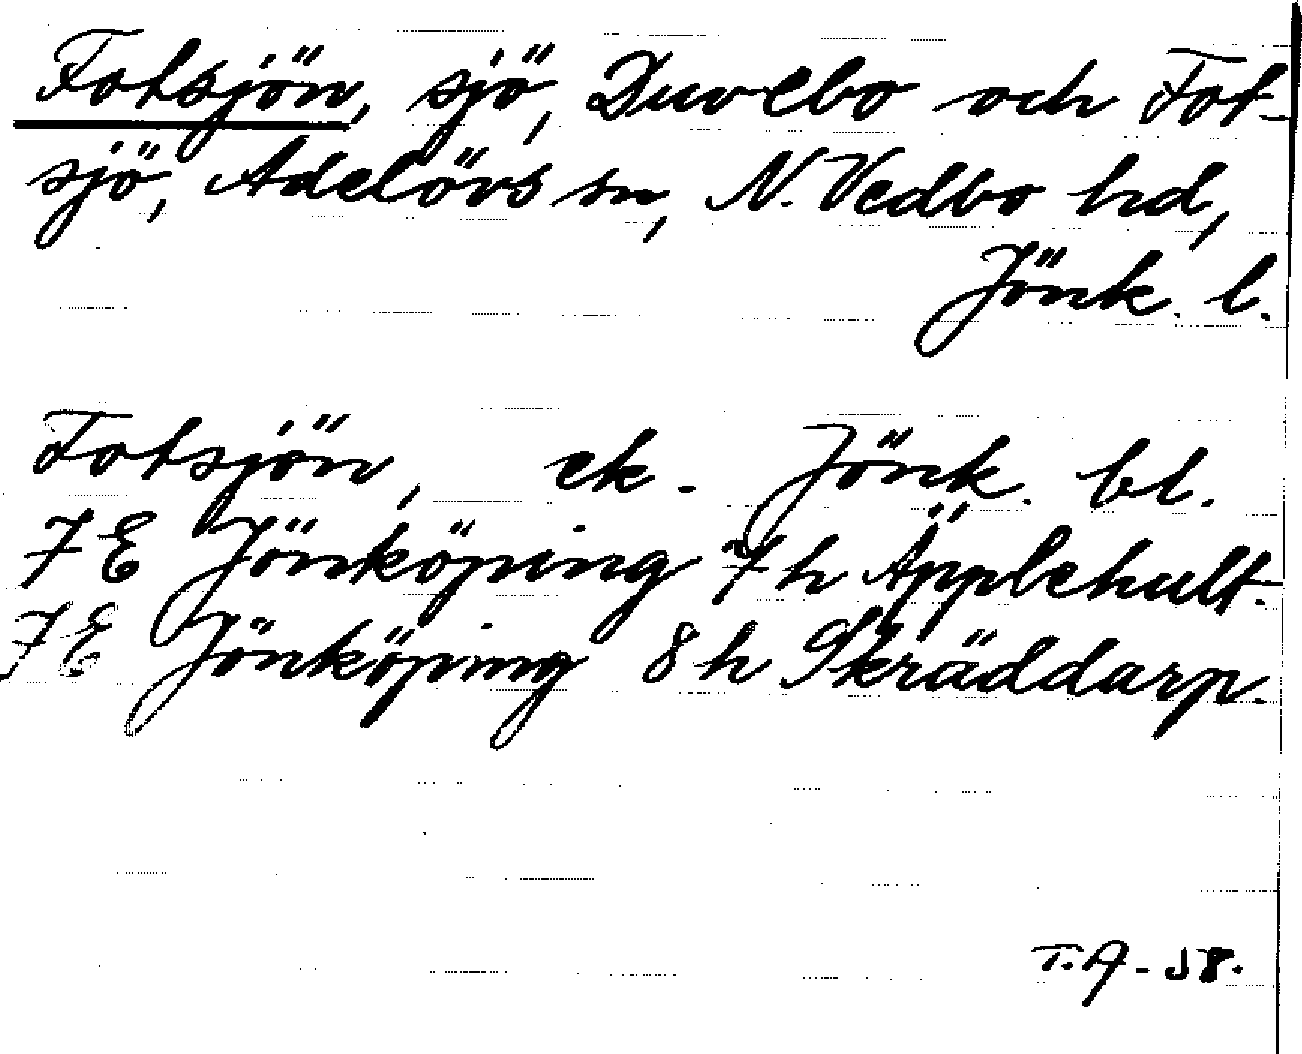 Fotsjön, sjö, Duvebo och Fot-
sjö, Adelövs sn, N. Vedbo hd,
Jönk. l.
Fotsjön, ek. Jönk. bl.
7E Jönköping 7h Äpplehult.
7E Jönköping 8h Skräddarp.
T.A-58.